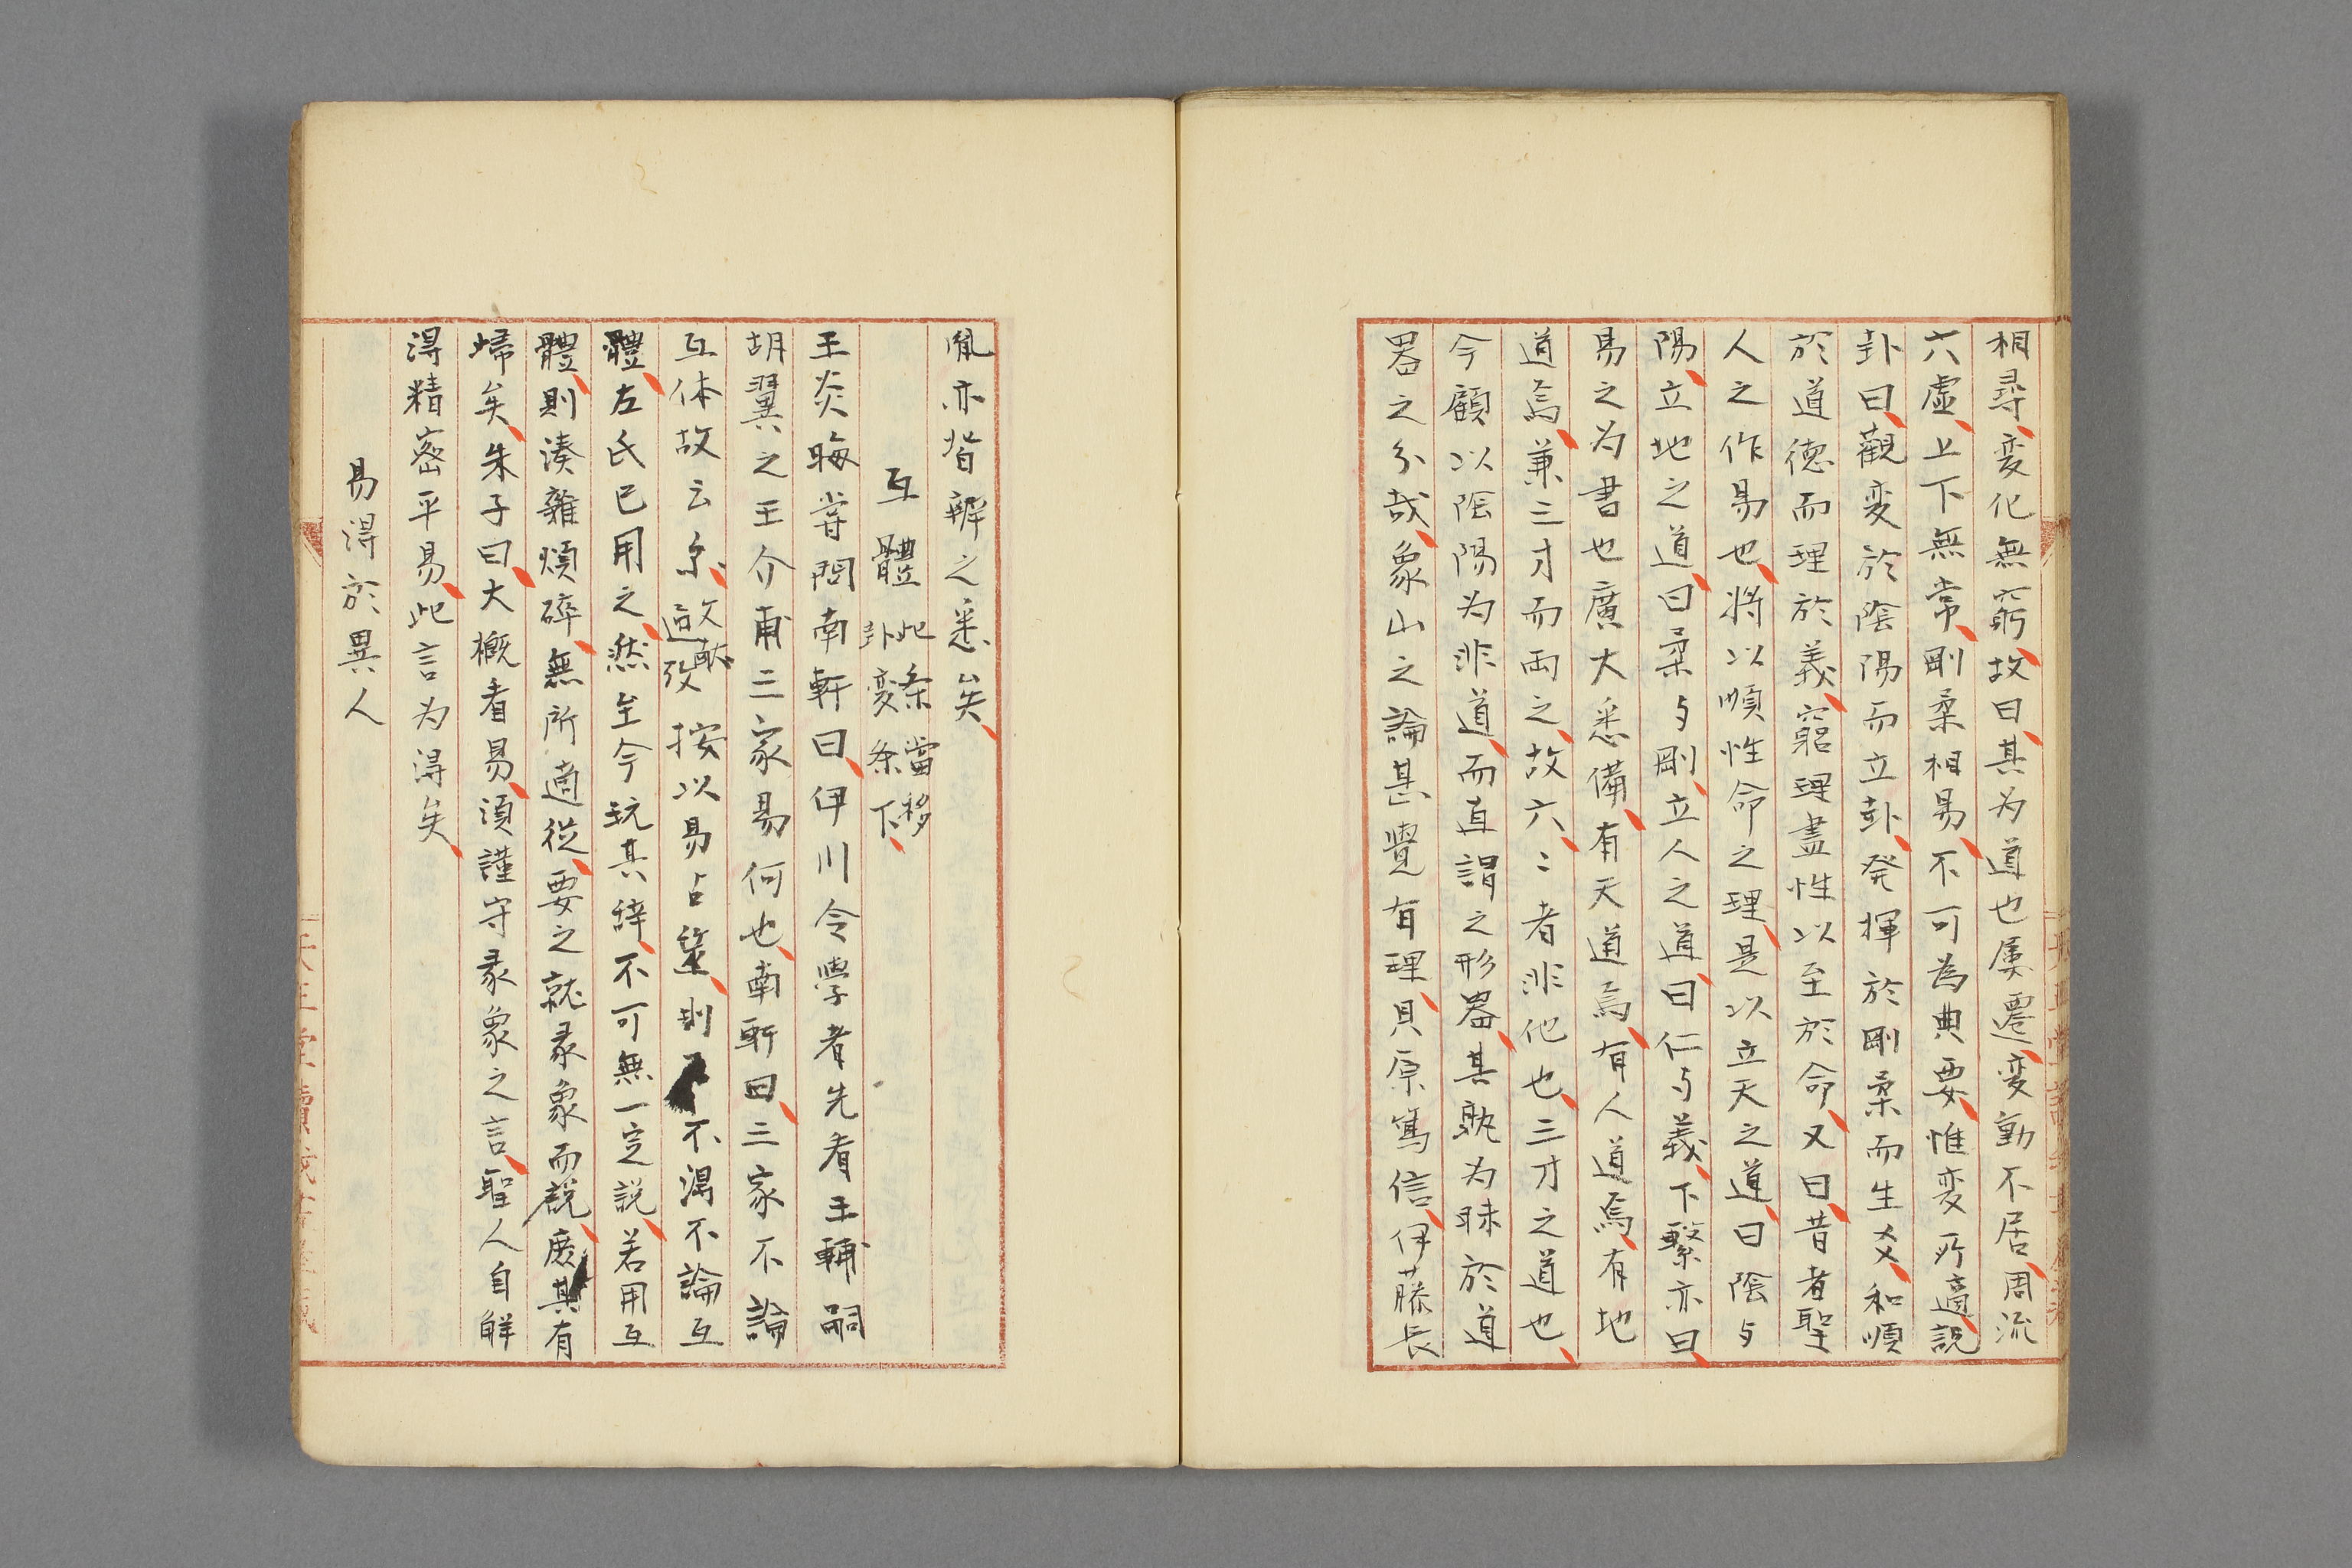 相尋変化無窮故曰其为道也屢遷変動不居周流
六虛上下無常剛柔相易不可為典要惟変所適説
卦曰觀変於陰陽而立卦発揮於剛柔而生爻和順
於道徳而理於義窮理盡性以至於命又曰昔者聖
人之作易也将以順性命之理是以立天之道曰陰与
陽立地之道曰柔与剛立人之道曰仁与義下繫亦曰
易之为書也廣大悉備有天道焉有人道焉有地
道焉兼三才而両之故六〻者非他也三才之道也
今顧以陰陽为非道而直謂之形器其孰为昧於道
器之分哉象山之論甚覺有理貝原篤信伊藤長
胤亦皆辨之悉矣
互體 此条當移卦変条下
王炎晦嘗問南軒曰伊川令學者先看王輔嗣
胡翼之王介甫三家易何也南軒曰三家不論
互体故云尓 文献通攷 按以易占筮則不得不論互
體左氏已用之然至今玩其辞不可無一定説若用互
體則湊雜煩碎無所適從要之就彖象而説庶其有
帰矣朱子曰大概看易須謹守彖象之言聖人自解
得精密平易此言为得矣
易得於異人